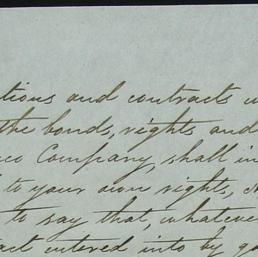 tions and contracts
the bonds, rights and
Company, shall in
to your own rights,
to say that, whatever
act entered into by